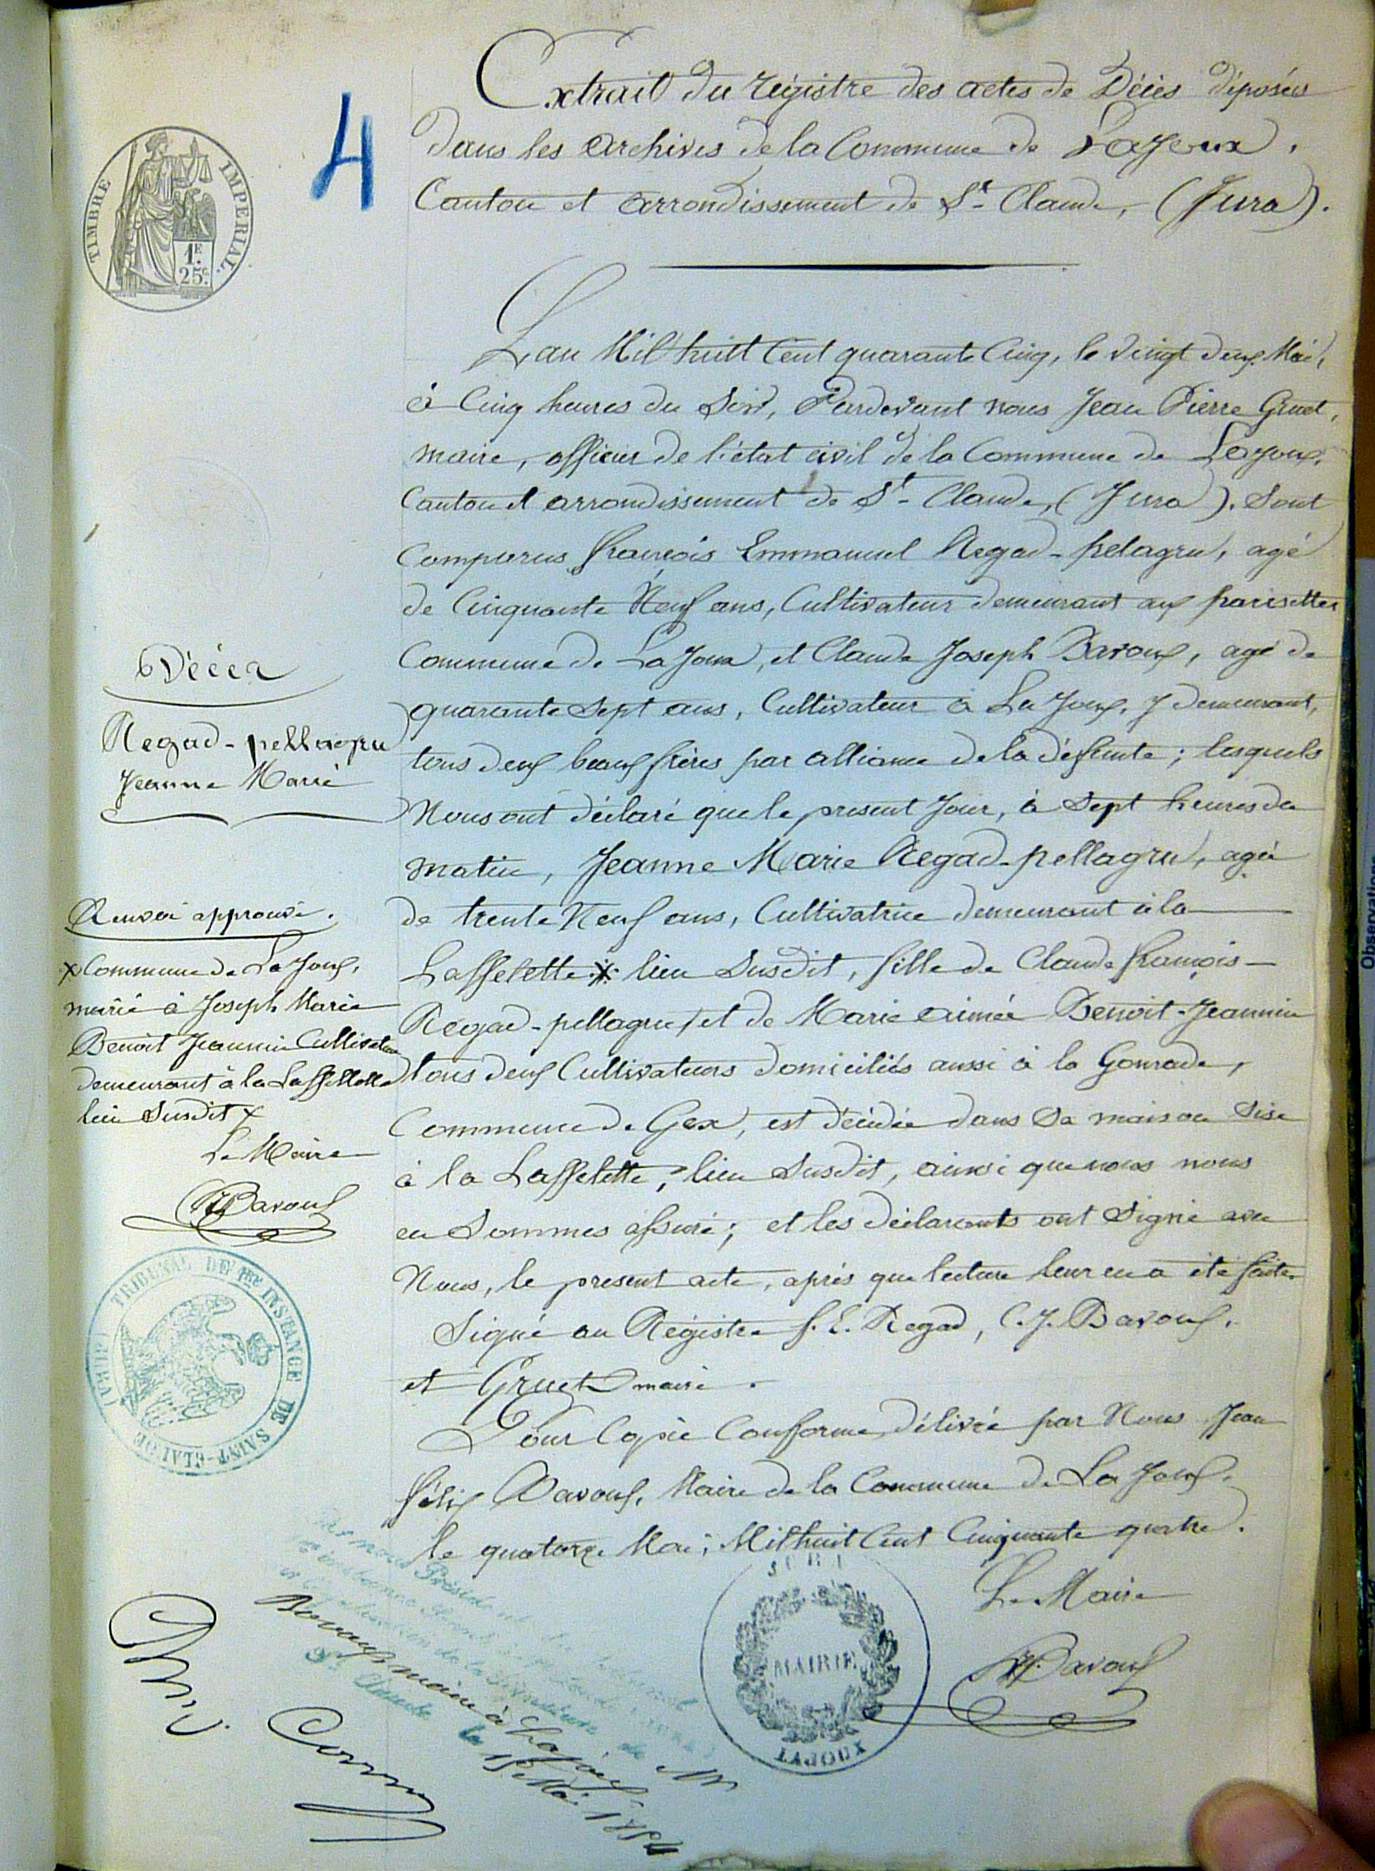 4
TIMBRE IMPERIAL.
1F.
25c.
Extrait du registre des actes de Décès déposés
dans les archives de la Commune de Lajoux.
Canton et arrondissement de St. Claude, (Jura).
L'an Mil huit Cent quarante Cinq, le vingt deux Mai,
à Cinq heures du Soir, Pardevant nous Jean Pierre Gruet,
maire, officier de l'état civil de la Commune de Lajoux,
Canton et arrondissement de St- Claude, (Jura). Sont
Comparus françois Emmanuel Regad-pelagru, agé
de Cinquante Neuf ans, Cultivateur demeurant aux parisettes
Commune de La Joux, et Claude Joseph Baroux, agé de
quarante Sept ans, Cultivateur à La Joux, y demeurant,
tous deux beaux frères par alliance de la défunte; lesquels
Nous ont déclaré que le present Jour, à Sept heures du
matin, Jeanne Marie Regad-pellagru, agée
de trente Neuf ans, Cultivatrice demeurant à la
Laffelette x lieu Susdit, fille de Claude françois
Regad-pellagru, et de Marie aimée Benoit-Jeannin
tous deux Cultivateurs domiciliés aussi à la
Commune de Gex, est décédée dans Sa maison Sise
à la Laffelette, lieu Susdit, ainsi que nous nous
en Sommes assuré; et les déclarants ont Signé avec
Nous, le present acte, après que lecture leur en a été faite
Signé au Régistre f. E. Regad, C. J. Baroux,
et Gruet maire.
Pour Copie Conforme délivrée par Nous Jean
félix Baroux, Maire de la Commune de La Joux,
le quatorze Mai, Mil huit Cent Cinquante quatre.
Le Maire
Baroux
Décès
Regad-pellagru
Jeanne Marie
Renvoi approuvé.
x Commune de La Joux,
marié à Joseph Marie
Benoit Jeannin Cultivateur
demeurant à la Laffellette
lieu Susdit x
Le Maire
Baroux
TRIBUNAL DE 1ERE INSTANCE DE SAINT-CLAUDE (JURA)
JURA
MAIRIE
LAJOUX
Président du tribunal
de la Signature de Mr
Baroux maire à Lajoux
St Claude le 15 Mai 1854
Observations